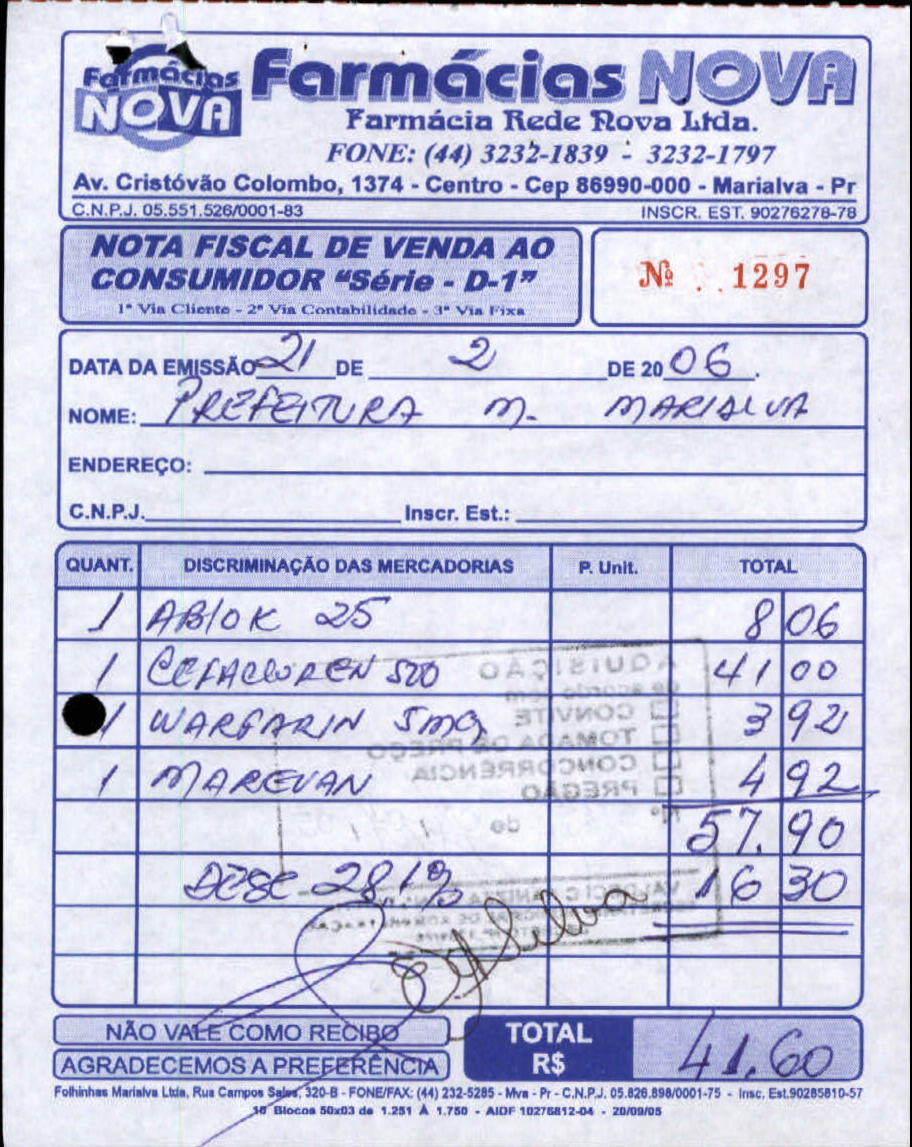 Farmácias NOVA
Farmácias NOVA
Farmácia Rede Nova Ltda.
FONE: (44) 3232-1839 - 3232-1797
Av. Cristóvão Colombo, 1374 - Centro - Cep 86990-000 - Marialva - Pr
C.N.P.J. 05.551.526/0001-83 INSCR. EST. 90276278-78
NOTA FISCAL DE VENDA AO
CONSUMIDOR "Série - D-1"
1ª Via Cliente - 2ª Via Contabilidade - 3ª Via Fixa
Nº 1297
DATA DA EMISSÃO 21 DE 2 DE 2006.
NOME: PREFEITURA M. MARIALVA
ENDEREÇO:
C.N.P.J. Inscr. Est.:
QUANT. DISCRIMINAÇÃO DAS MERCADORIAS P. Unit. TOTAL
1 ABLOK 25 8 06
1 CEFACLOREN 500 41 00
1 WARFARIN 5mg 3 92
1 MAREVAN 4 92
57.90
DESC 28,1% 16 30
AQUISIÇÃO
de acordo com
CONVITE
TOMADA DE PREÇO
CONCORRÊNCIA
PREGÃO
Nº de
NÃO VALE COMO RECIBO
AGRADECEMOS A PREFERÊNCIA
TOTAL
R$ 41,60
Folhinhas Marialva Ltda, Rua Campos Sales, 320-B - FONE/FAX: (44) 232-5285 - Mva - Pr - C.N.P.J. 05.826.898/0001-75 - Insc. Est.90285810-57
10 Blocos 50x03 de 1.251 À 1.750 - AIDF 10276812-04 - 20/09/05